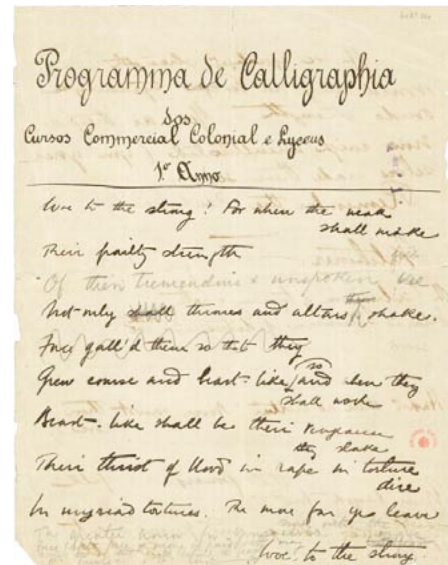 Programma de Calligraphia
dos
Cursos Commercial Colonial e Lyceus
1º Anno
Woe to the strong! For when the weak
shall make
Their frailty strength
Of their tremendous & unspoken
Not only shall thrones and altars shake.
Force gall'd them so that they
so
Grew coarse and beast-like, and when they
shall wake
Beast-like shall be their vengeance
they slake
Their thirst of blood in rape in torture
dire
In myriad tortures. The more for you leave
Woe to the strong.